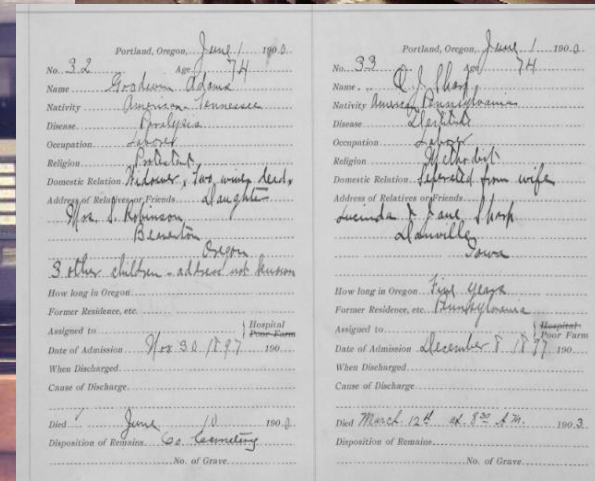 Portland, Oregon, June 1 1900.
No. 32 Age 74
Name Goodwin Adams
Nativity American - Tennessee
Disease Paralysis
Occupation Laborer
Religion Protestant
Domestic Relation Widower, Two wives dead,
Address of Relatives or Friends Daughter
Mrs. S. Robinson
Beaverton
Oregon
3 other children - address not known
How long in Oregon
Former Residence, etc.
Assigned to Hospital Poor Farm
Date of Admission Nov 30 1897 190
When Discharged
Cause of Discharge
Died June 10 1900.
Disposition of Remains Co. Cemetery
No. of Grave
Portland, Oregon, June 1 1900.
No. 33 Age 74
Name J. Sharp
Nativity American Pennsylvania
Disease
Occupation Laborer
Religion Methodist
Domestic Relation Seperated from wife
Address of Relatives or Friends
Lucinda Jane Sharp
Danville
Iowa
How long in Oregon Five years
Former Residence, etc. Pennsylvania
Assigned to Hospital Poor Farm
Date of Admission December 8 1897 190
When Discharged
Cause of Discharge
Died March 12th at 8 30 A.M. 1903
Disposition of Remains
No. of Grave